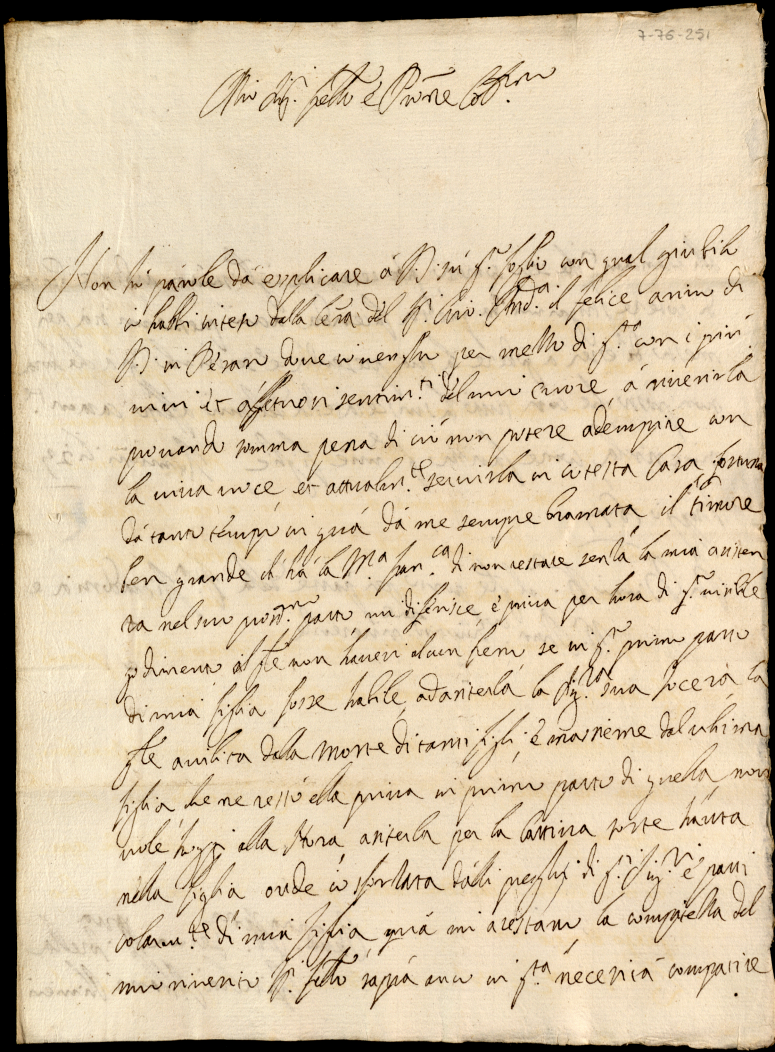 7-76-251
Mio Sig.r fratello è Prone
Non hò parole dà esplicare à V.S. in q.to foglio con qual giubilo
io habbi inteso dalla l'ra del il felice arrivo di
V.S. in Pesaro dove io verso per mezzo di q.ta con i più
vivi et affettuosi sentim.ti del mio cuore à riverirla
provando somma pena di ciò non potere adempire con
la viva voce et attualm.te servirla in cotesta Casa fortuna
dà tanto tempo in quà dà me sempre bramata il timore
ben grande ch'hà la M.a Fran.ca di non restare senza la mia assisten
za nel suo parto mi diferisce è priva per hora di q.to visibile
godimento al q.le non haverei alcun freno se in q.to primo parto
di mia figlia fosse habile ad assisterla la Sig.ra sua socera la
q.le avvilita dalla morte di tanti figli, è massieme dal ultima
figlia che ne restò ella priva in primo parto di quella non
vole hoggi alla Nora assisterla per la cattiva sorte hauta
nella figlia onde io sforzata dalli preghi di q.ti Sig.ri è parti
colarm.te di mia figlia quà mi arestano la compitezza del
mio riverito Sig. fratello saprà anco in q.ta necessità compatire